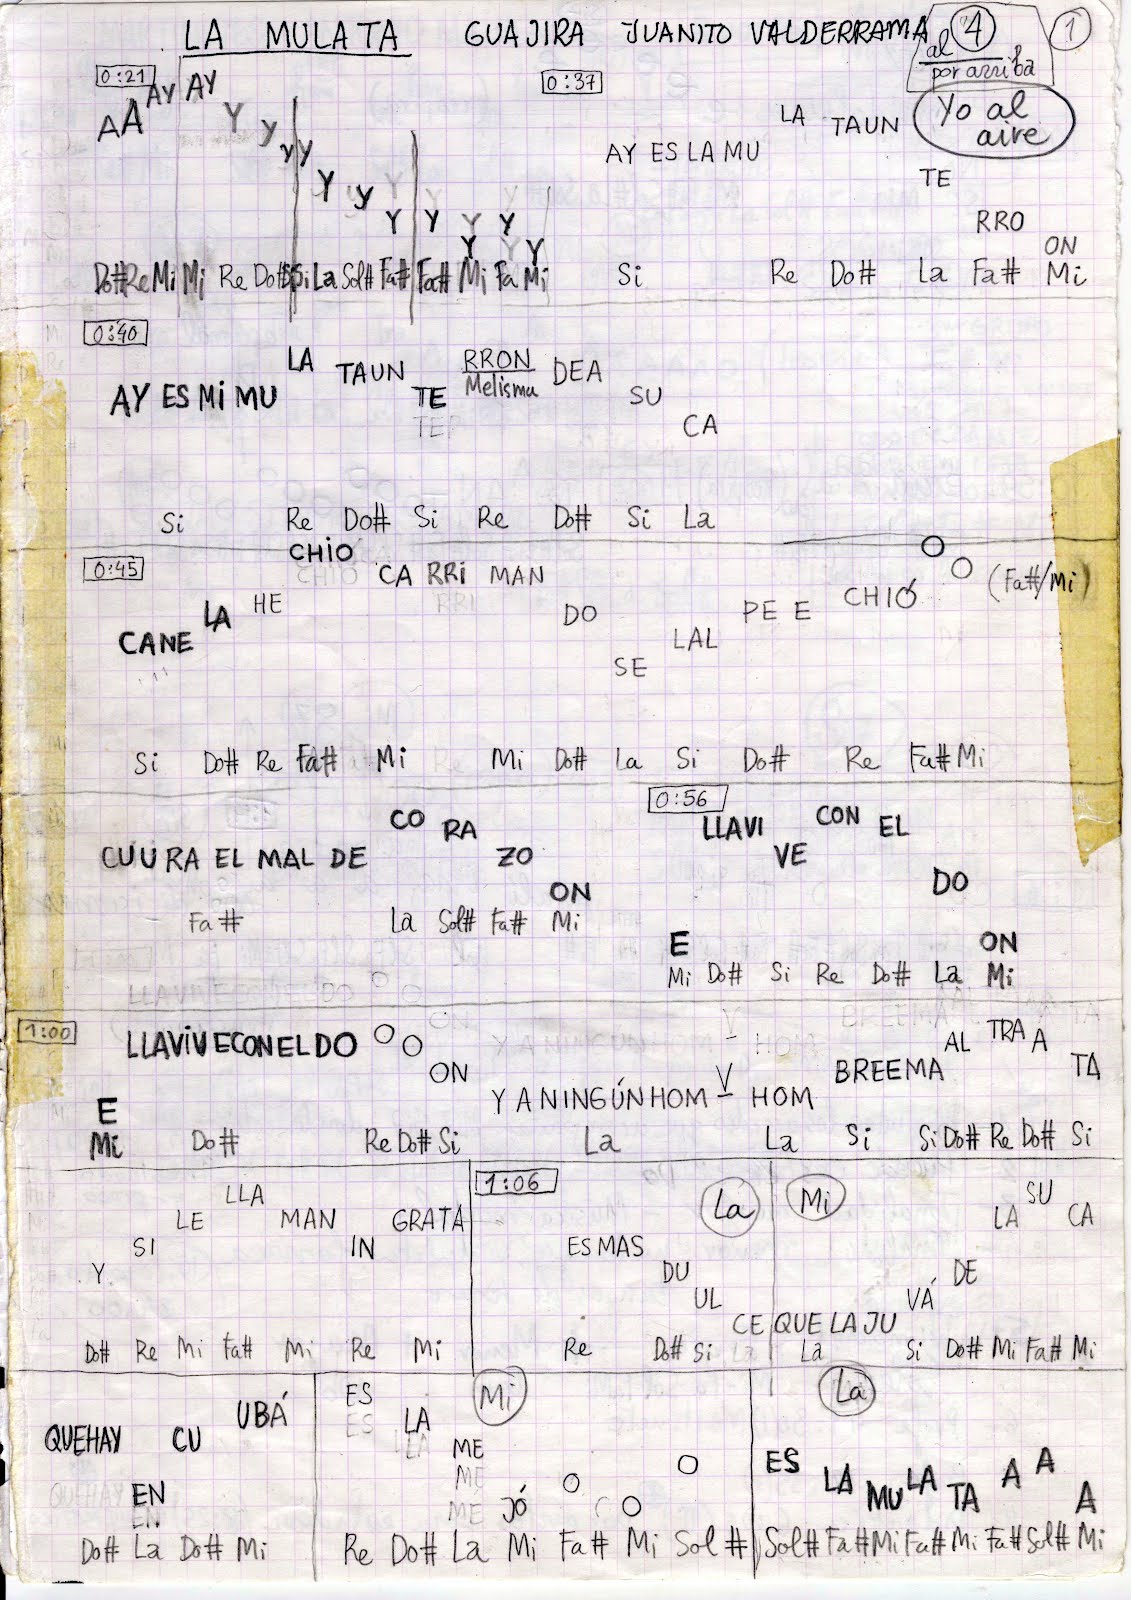 LA MULATA GUAJIRA JUANITO VALDERRAMA al 4 por arriba 1
Yo al aire
0:21
AA AY AY Y Y Y Y Y Y Y Y Y Y Y Y Y Y
Do# Re Mi Mi Re Do# Si Si La Sol# Fa# Fa# Mi Fa Mi
0:37
AY ES LA MU LA TAUN TE RRO ON
Si Re Do# La Fa# Mi
0:40
AY ES MI MU LA TAUN TE RRON Melisma DEA SU CA
Si Re Do# Si Re Do# Si La
0:45
CANE LA HE CHIÓ CA RRI MAN DO SE LAL PE E CHIÓ O O (Fa#/Mi)
Si Do# Re Fa# Mi Mi Do# La Si Do# Re Fa# Mi
CUURA EL MAL DE CO RA ZO ON
Fa# La Sol# Fa# Mi
0:56
E LLAVI VE CON EL DO ON
Mi Do# Si Re Do# La Mi
1:00
E LLAVIVECONELDO O O ON Y A NINGÚN HOM V HOM BREEMA AL TRA A TA
Mi Do# Re Do# Si La La Si Si Do# Re Do# Si
Y SI LE LLA MAN IN GRATA
Do# Re Mi Fa# Mi Re Mi
1:06
La Mi
ES MAS DU UL CE QUE LA JU VÁ DE LA SU CA
Re Do# Si La La Si Do# Mi Fa# Mi
QUEHAY EN CU UBÁ
Do# La Do# Mi
Mi
ES LA ME JÓ O O O
Re Do# La Mi Fa# Mi Sol#
La
ES LA MU LA TA A A A
Sol# Fa# Mi Fa# Mi Fa# Sol# Mi